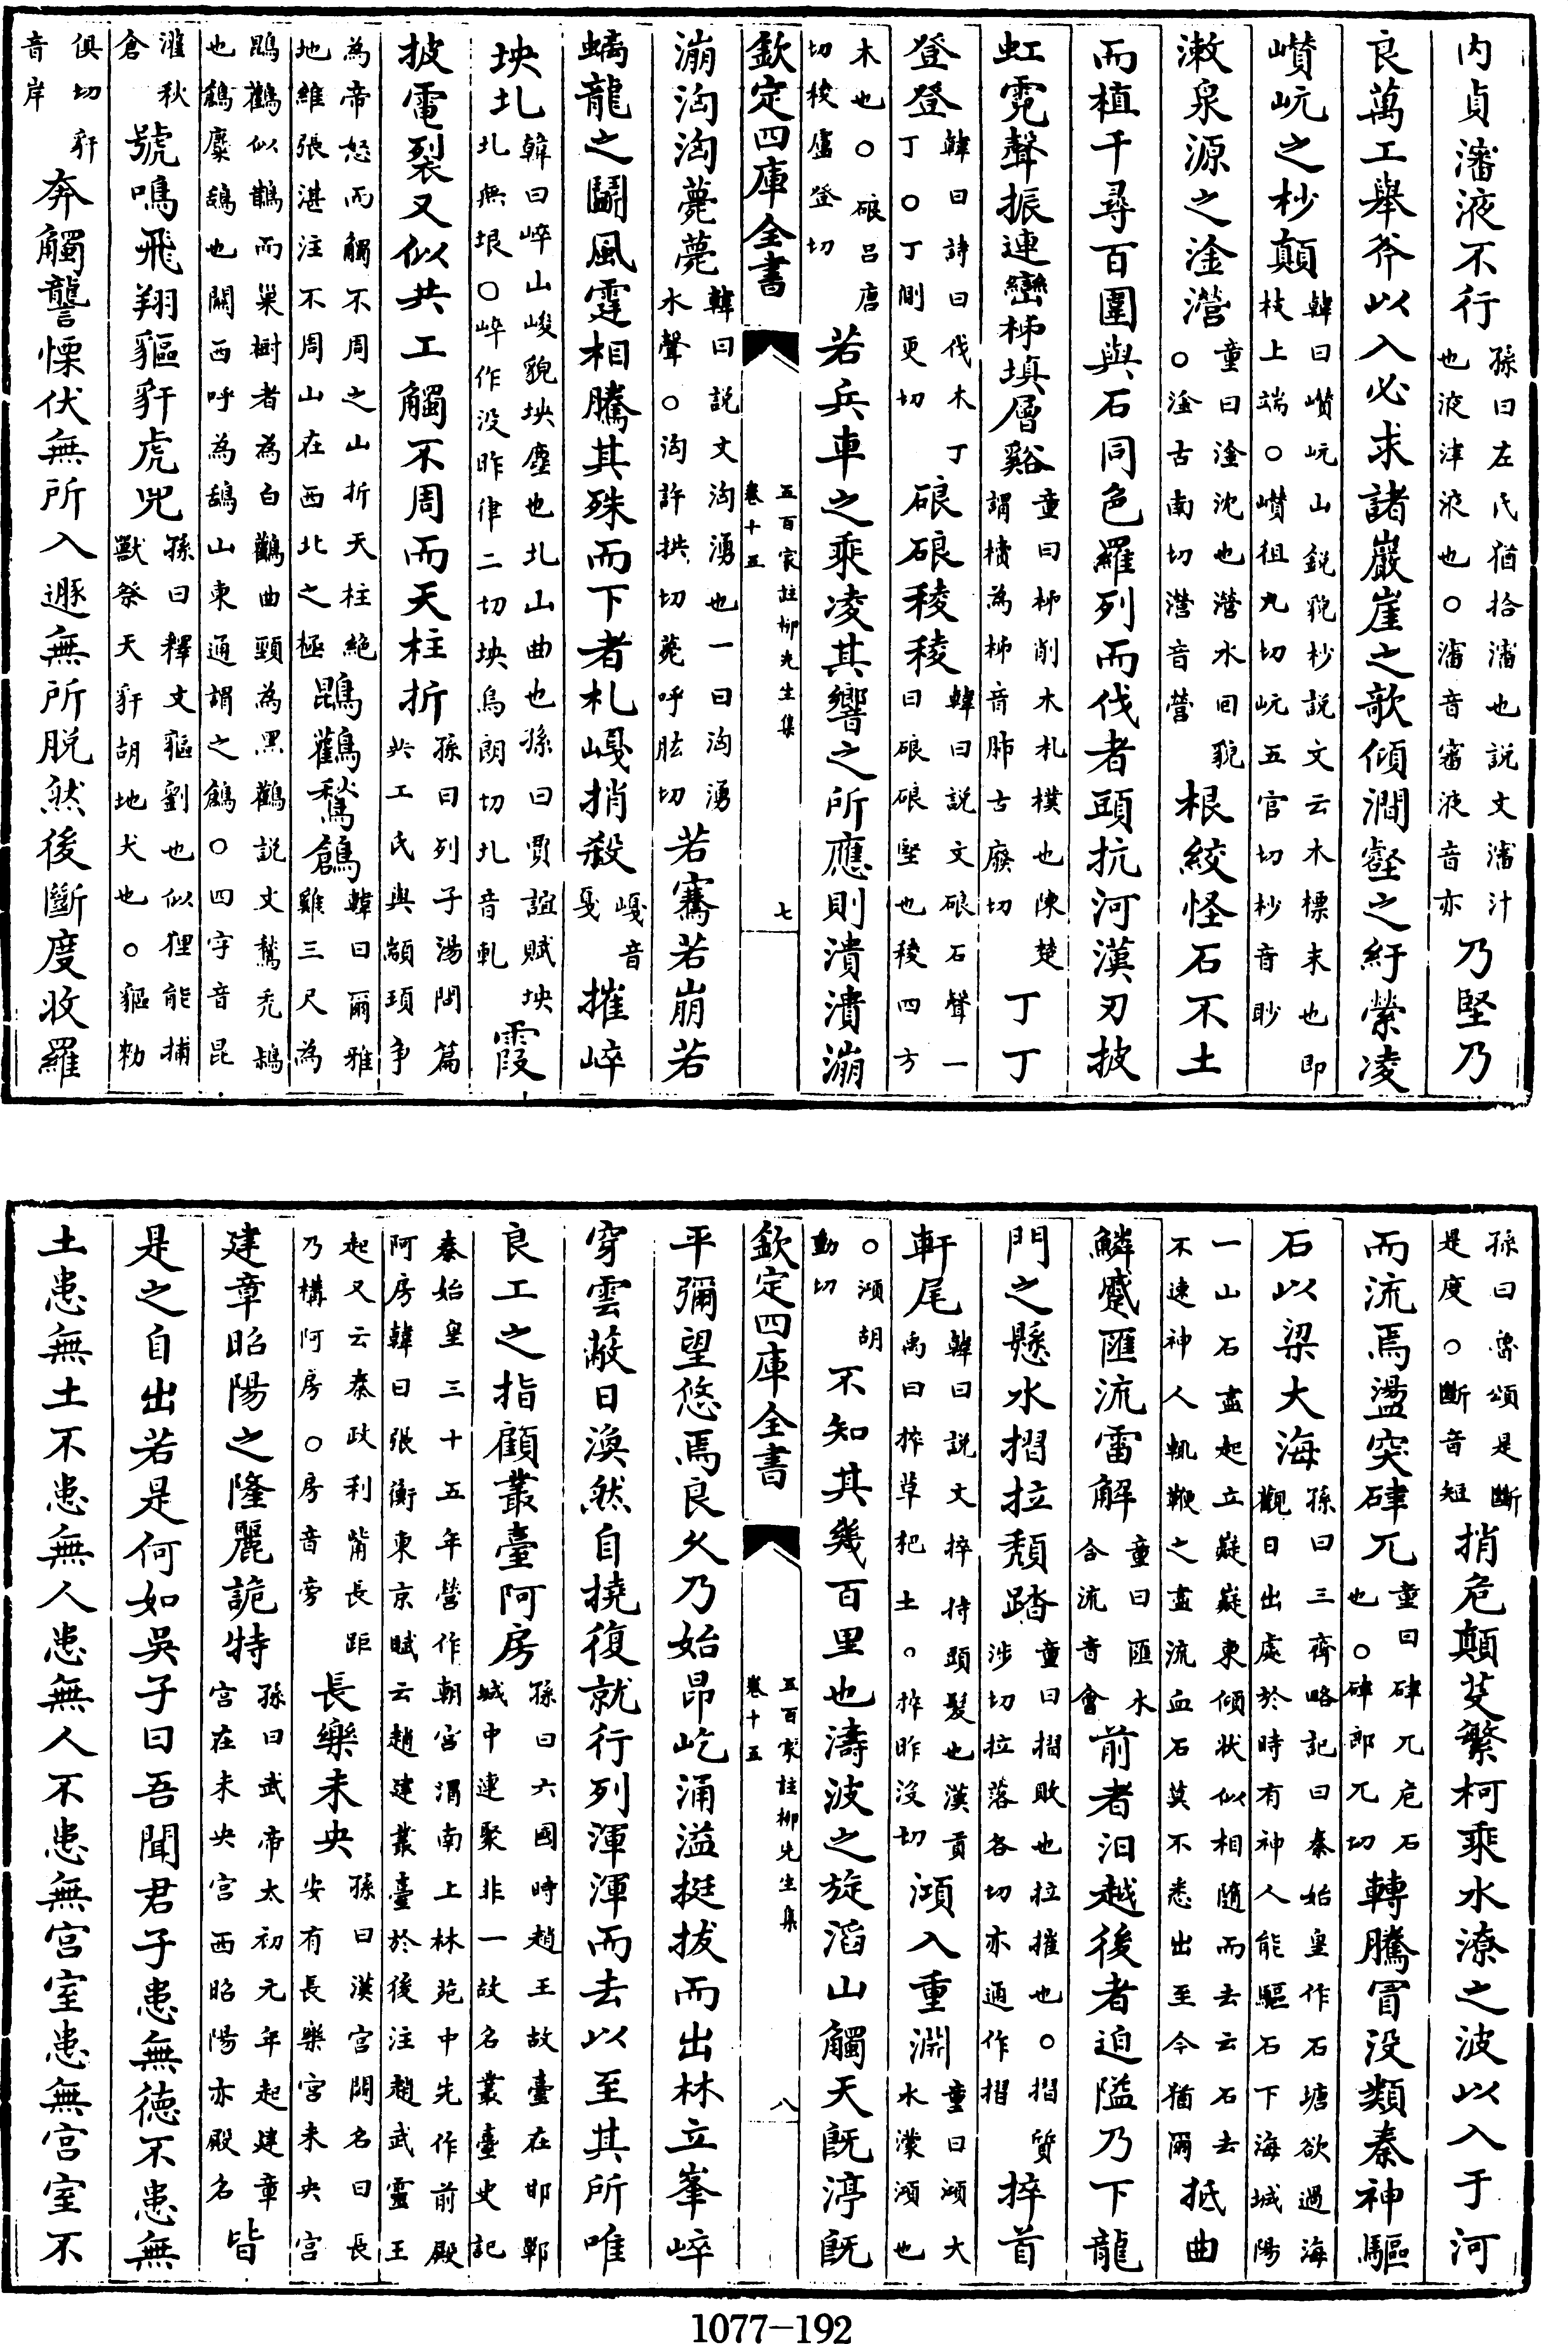 内貞瀋液不行孫曰左氏猶拾瀋也説文瀋汁也液津液也○瀋音審液音亦乃堅乃
良萬工舉斧以入必求諸巖崖之欹傾澗壑之紆縈凌
巑岏之杪顛韓曰巑岏山鋭貌杪説文云木標末也即枝上端○巑徂丸切岏五官切杪音眇
漱泉源之淦瀯童曰淦沈也瀯水回貌○淦古南切瀯音營根絞怪石不土
而植千尋百圍與石同色羅列而伐者頭抗河漢刃披
虹霓聲振連巒柹填層谿童曰柹削木札樸也陳楚謂櫝為柹音肺古廢切丁丁
登登韓曰詩曰伐木丁丁○丁側更切硠硠稜稜韓曰説文硠石聲一曰硠硠堅也稜四方
木也○硠吕唐切稜盧登切若兵車之乘凌其響之所應則潰潰漰
欽定四庫全書 五百家註柳先生集 卷十五 七
漰洶洶薨薨韓曰説文洶湧也一曰洶湧水聲○洶許拱切薨呼肱切若騫若崩若
螭龍之鬭風霆相騰其殊而下者札嘎捎殺嘎音戛摧崪
坱圠韓曰崪山峻貌坱塵也圠山曲也孫曰賈誼賦坱圠無垠○崪作没昨律二切坱烏朗切圠音軋霞
披電裂又似共工觸不周而天柱折孫曰列子湯問篇共工氏與顓頊争
為帝怒而觸不周之山折天柱絶地維張湛注不周山在西北之極鵾鸛鶖鶬韓曰爾雅雞三尺為
鵾鸛似鵲而巢樹者為白鸛曲頸為黑鸛説文鶖禿鶖也鶬麋鴰也關西呼為鴰山東通謂之鶬○四字音昆
漼秋倉號鳴飛翔貙豻虎兕孫曰釋文貙劉也似狸能捕獸祭天豻胡地犬也○貙敕
俱切豻音岸奔觸讋慄伏無所入遯無所脱然後斷度收羅
孫曰魯頌是斷是度○斷音短捎危顛芟繁柯乘水潦之波以入于河
而流焉盪突硉兀童曰硉兀危石也○硉郎兀切轉騰冒没類秦神驅
石以梁大海孫曰三齊略記曰秦始皇作石塘欲過海觀日出處於時有神人能驅石下海城陽
一山石盡起立嶷嶷東傾状似相隨而去云石去不速神人輒鞭之盡流血石莫不悉出至今猶爾抵曲
鱗蹙匯流雷解童曰匯水合流音會前者汨越後者迫隘乃下龍
門之懸水摺拉頽踏童曰摺敗也拉摧也○摺質涉切拉落各切亦適作摺捽首
軒尾韓曰説文捽持頭髮也漢貢禹曰捽草杷土○捽昨没切澒入重淵童曰澒大水濛澒也
○澒胡動切不知其幾百里也濤波之旋滔山觸天既渟既
欽定四庫全書 五百家註柳先生集 卷十五 八
平彌望悠焉良久乃始昂屹涌溢挺拔而出林立峯崪
穿雲蔽日渙然自撓復就行列渾渾而去以至其所唯
良工之指顧叢臺阿房孫曰六國時趙王故臺在邯鄲城中連聚非一故名叢臺史記
秦始皇三十五年營作朝宫渭南上林苑中先作前殿阿房韓曰張衡東京賦云趙建叢臺於後注趙武靈王
起又云秦政利觜長距乃構阿房○房音旁長樂未央孫曰漢宫闕名曰長安有長樂宫未央宫
建章昭陽之隆麗詭特孫曰武帝太初元年起建章宫在未央宫西昭陽亦殿名皆
是之自出若是何如吳子曰吾聞君子患無徳不患無
土患無土不患無人患無人不患無宫室患無宫室不
1077-192